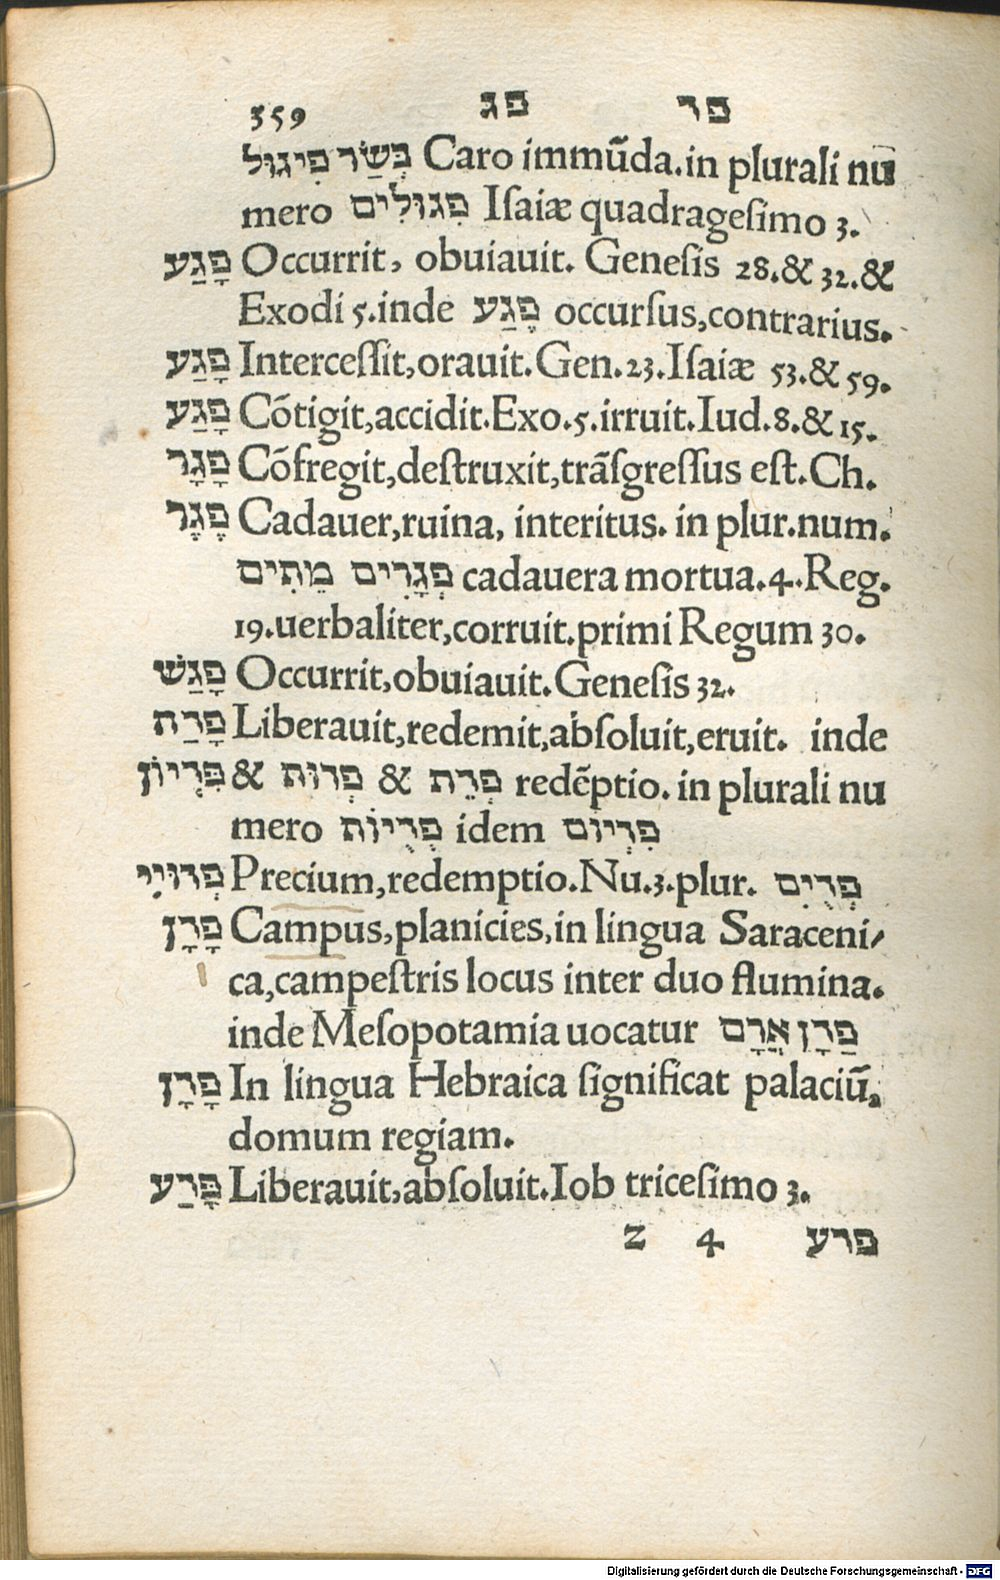 359 פג פד
בְּשַׂר פִיגוּל Caro immūda.in plurali nu
mero פִגוּלִים Iſaiæ quadrageſimo 3.
פָגַע Occurrit, obuiauit. Geneſis 28.& 32.&
Exodi 5.inde פֶגַע occurſus,contrarius.
פָגַע Interceſſit,orauit.Gen.23.Iſaiæ 53.& 59.
פָגַע Cōtigit,accidit.Exo.5.irruit.Iud.8.& 15.
פָגָר Cōfregit,deſtruxit,trāſgreſſus eſt.Ch.
פֶגֶר Cadauer,ruina, interitus. in plur.num.
פְגָרִים מֵתִים cadauera mortua.4.Reg.
19.uerbaliter,corruit.primi Regum 30.
פָגַשׁ Occurrit,obuiauit.Geneſis 32.
פָדַה Liberauit,redemit,abſoluit,eruit. inde
פִדְיוֹן & פְדוּת & פְדֵת redēptio. in plurali nu
mero פְדֻיוֹת idem פִדְיוֹם
פְדוּיֵי Precium,redemptio.Nu.3.plur. פְדֻיִם
פָדָן Campus,planicies,in lingua Saraceni/
ca,campeſtris locus inter duo flumina.
inde Meſopotamia uocatur פַדָן אֲרָם
פָדָן In lingua Hebraica ſignificat palaciū,
domum regiam.
פָדַע Liberauit,abſoluit.Iob triceſimo 3.
Z 4 פדע
Digitalisierung gefördert durch die Deutsche Forschungsgemeinschaft - DFG